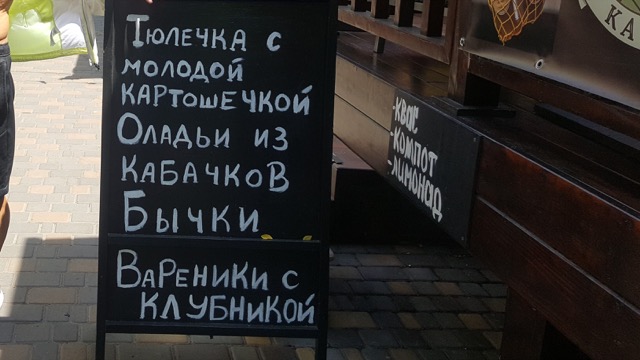 Тюлечка с
молодой
картошечкой
Оладьи из
кабачков
Бычки
Вареники с
клубникой
-квас
-компот
-лимонад
КА